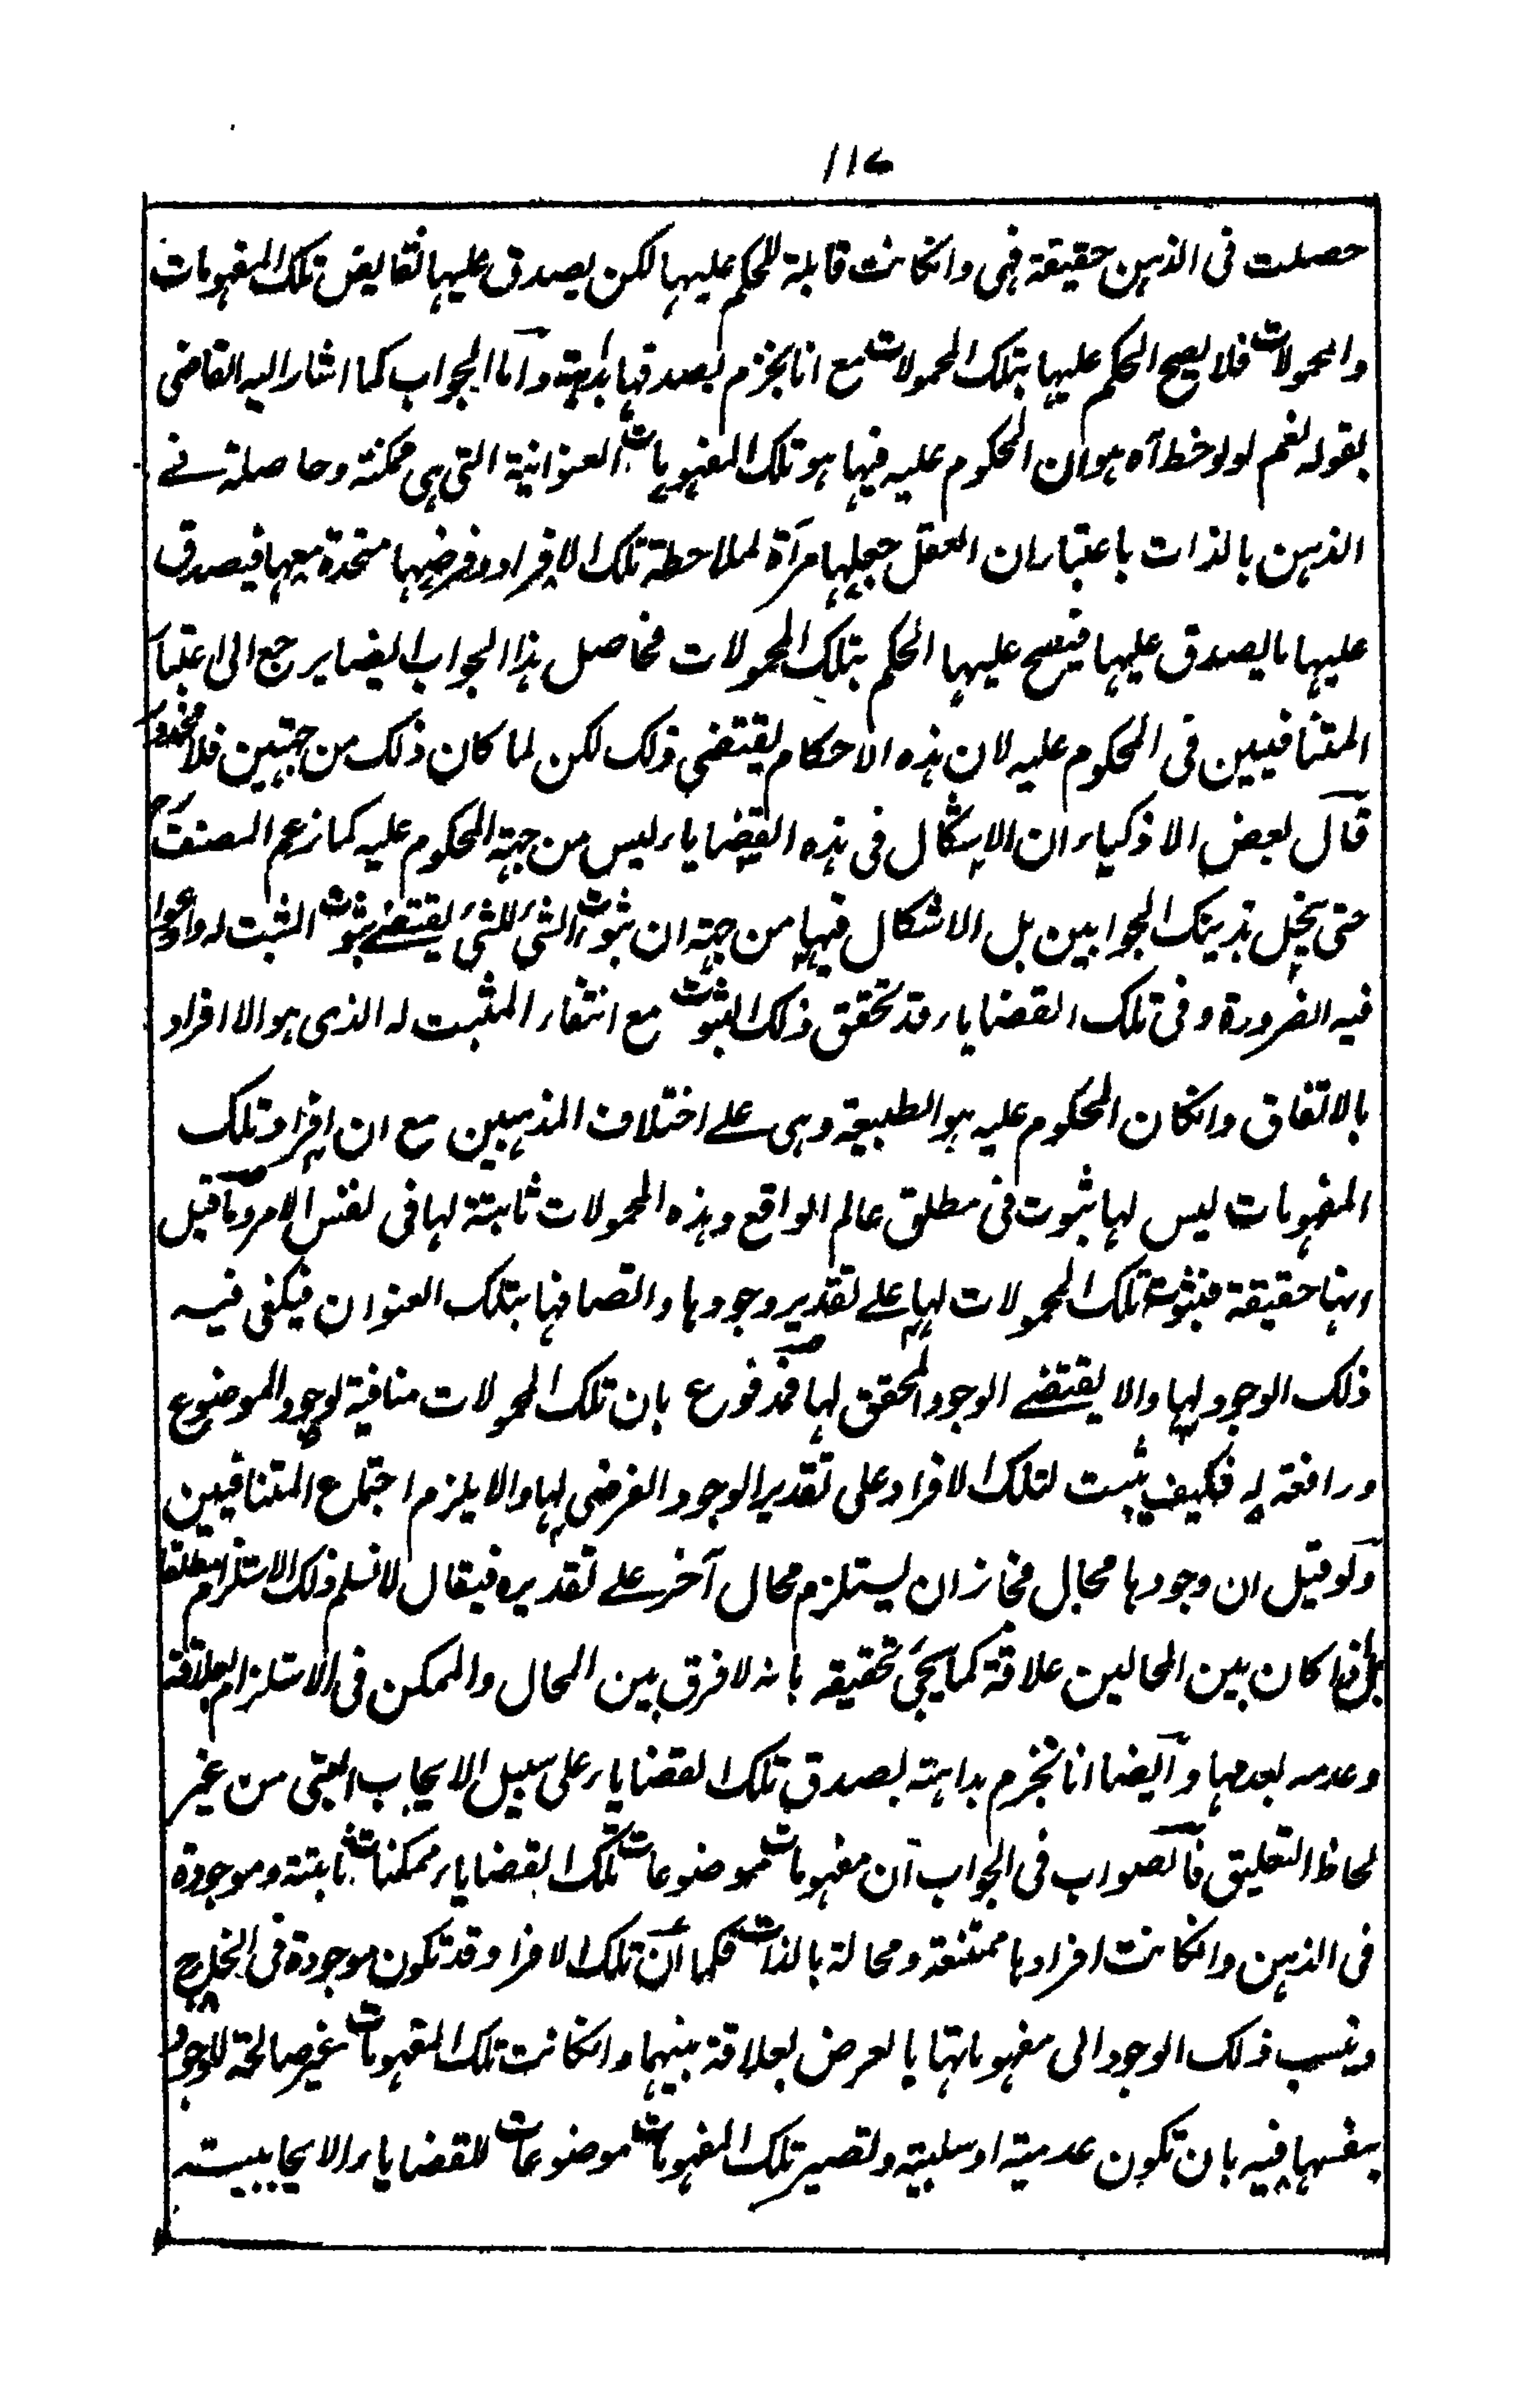 ١١٧
حصلت فى الذهن حقيقة فهى وانكانت قابلة للحكم عليها لكن يصدق عليها نقايض تلك المفهومات
والمحمولات فلا يصح الحكم عليها بتلك المحمولات مع انا نجزم بصدقها بداهة واما الجواب كما اشار اليه القاضى
بقوله نعم لو لوخط آه هو ان المحكوم عليه فيها هو تلك المفهومات العنوانية التى هى ممكنة وحاصلة فے
الذهن بالذات باعتبار ان العقل جعلها مرآة لملاحظة تلك الافراد وفرضها متحدة معها فيصدق
عليها ما يصدق عليها فيصح عليها الحكم بتلك المحمولات فحاصل هذا الجواب ايضا يرجع الى اعتبار
المتنافيين فى المحكوم عليه لان هذه الاحكام يقتضى ذلك لكن لما كان ذلك من جهتين فلا محذور
قال بعض الاذكياء ان الاشكال فى هذه القضاياء ليس من جهة المحكوم عليه كما زعم المصنف رح
حتى ينحل بذينك الجوابين بل الاشكال فيها من جهة ان ثبوت الشئ للشئ يقتضے ثبوت المثبت له وادعوا
فيه الضرورة وفى تلك القضاياء قد تحقق ذلك الثبوت مع انتفاء المثبت له الذى هو الافراد
بالاتفاق وانكان المحكوم عليه هو الطبيعة وهى علے اختلاف المذهبين مع ان افراد تلك
المفهومات ليس لها ثبوت فى مطلق عالم الواقع وهذه المحمولات ثابتة لها فى نفس الامر وما قيل
انها حقيقة فثبوت تلك المحمولات لها علے تقدير وجودها واتصافها بتلك العنوان فيكفى فيه
ذلك الوجود لها والا يقتضے الوجود المحقق لها فمدفوع بان تلك المحمولات منافية لوجود الموضوع
ورافعة له فكيف يثبت لتلك الافراد على تقدير الوجود الفرضى لها والا يلزم اجتماع المتنافيين
ولو قيل ان وجودها محال فجاز ان يستلزم محال آخر علے تقديره فيقال لا نسلم ذلك الاستلزام مطلقا
بل اذا كان بين المحالين علاقة كما يجئ تحقيقه بانه لا فرق بين المحال والممكن فى الاستلزام لعلاقة
وعدمه بعدمها وايضا انا نجزم بداهته بصدق تلك القضاياء على سبيل الايجاب البتى من غير
لحاظ التعليق فالصواب فى الجواب ان مفهومات موضوعات تلك القضاياء ممكنات ثابتة وموجودة
فى الذهن وانكانت افرادها ممتنعة ومحالة بالذات فكما ان تلك الافراد قد تكون موجودة فى الخارج
وينسب ذلك الوجود الى مفهوماتها بالعرض لعلاقة بينهما وانكانت تلك المفهومات غير صالحة للوجود
بنفسها فيه بان تكون عدمية او سلبية وتصير تلك المفهومات موضوعات للقضاياء الايجابيته